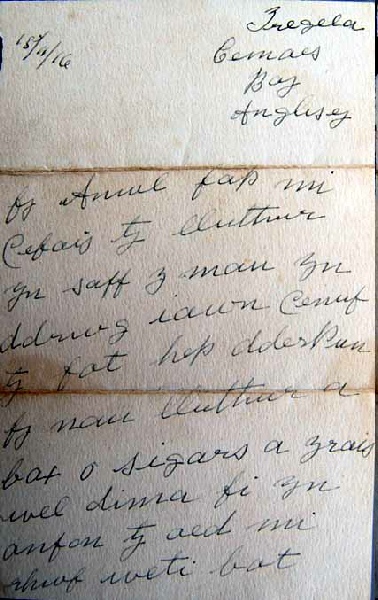 Tregela
15/11/16
Cemaes
Bay
Anglisey
fy Anwl fab mi
Cefais ty lluthur
yn saff y mau yn
ddrwg iawn Cenuf
ty fot heb dderbun
fy nau lluthur a
box o sigars a yrais
wel dima fi yn
anfon ty oed mi
rhwf weti bot